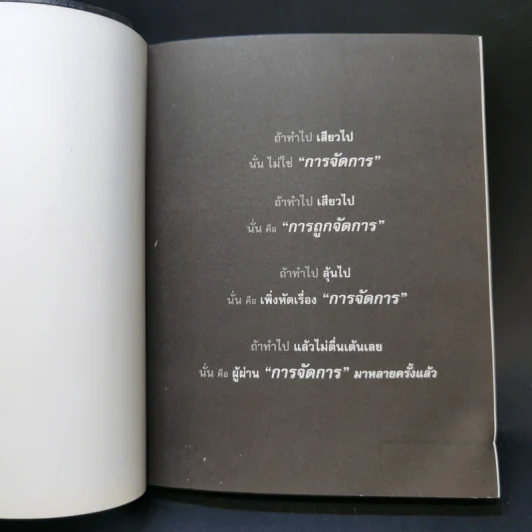 ถ้าทำไป เสียวไป
นั่น ไม่ใช่ “การจัดการ”
ถ้าทำไป เสียวไป
นั่น คือ “การถูกจัดการ”
ถ้าทำไป ลุ้นไป
นั่น คือ เพิ่งหัดเรื่อง “การจัดการ”
ถ้าทำไป แล้วไม่ตื่นเต้นเลย
นั่น คือ ผู้ผ่าน “การจัดการ” มาหลายครั้งแล้ว